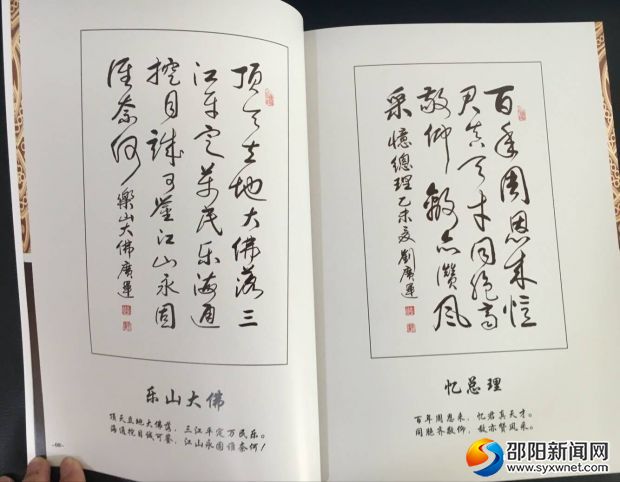 顶天立地大佛落三
江平定万民乐海通
挖目诚可鉴江山永固
谁奈何
樂山大佛廣運
乐山大佛
顶天立地大佛落，三江平定万民乐。
海通挖目诚可鉴，江山永固谁奈何！
-08-
百年周恩来忆
君真天才同胞齐
敬仰敌亦赞风
采
憶總理乙未夏劉廣運
忆总理
百年周恩来，忆君真天才。
同胞齐敬仰，敌亦赞风采。
邵阳新闻网
www.syxwnet.com